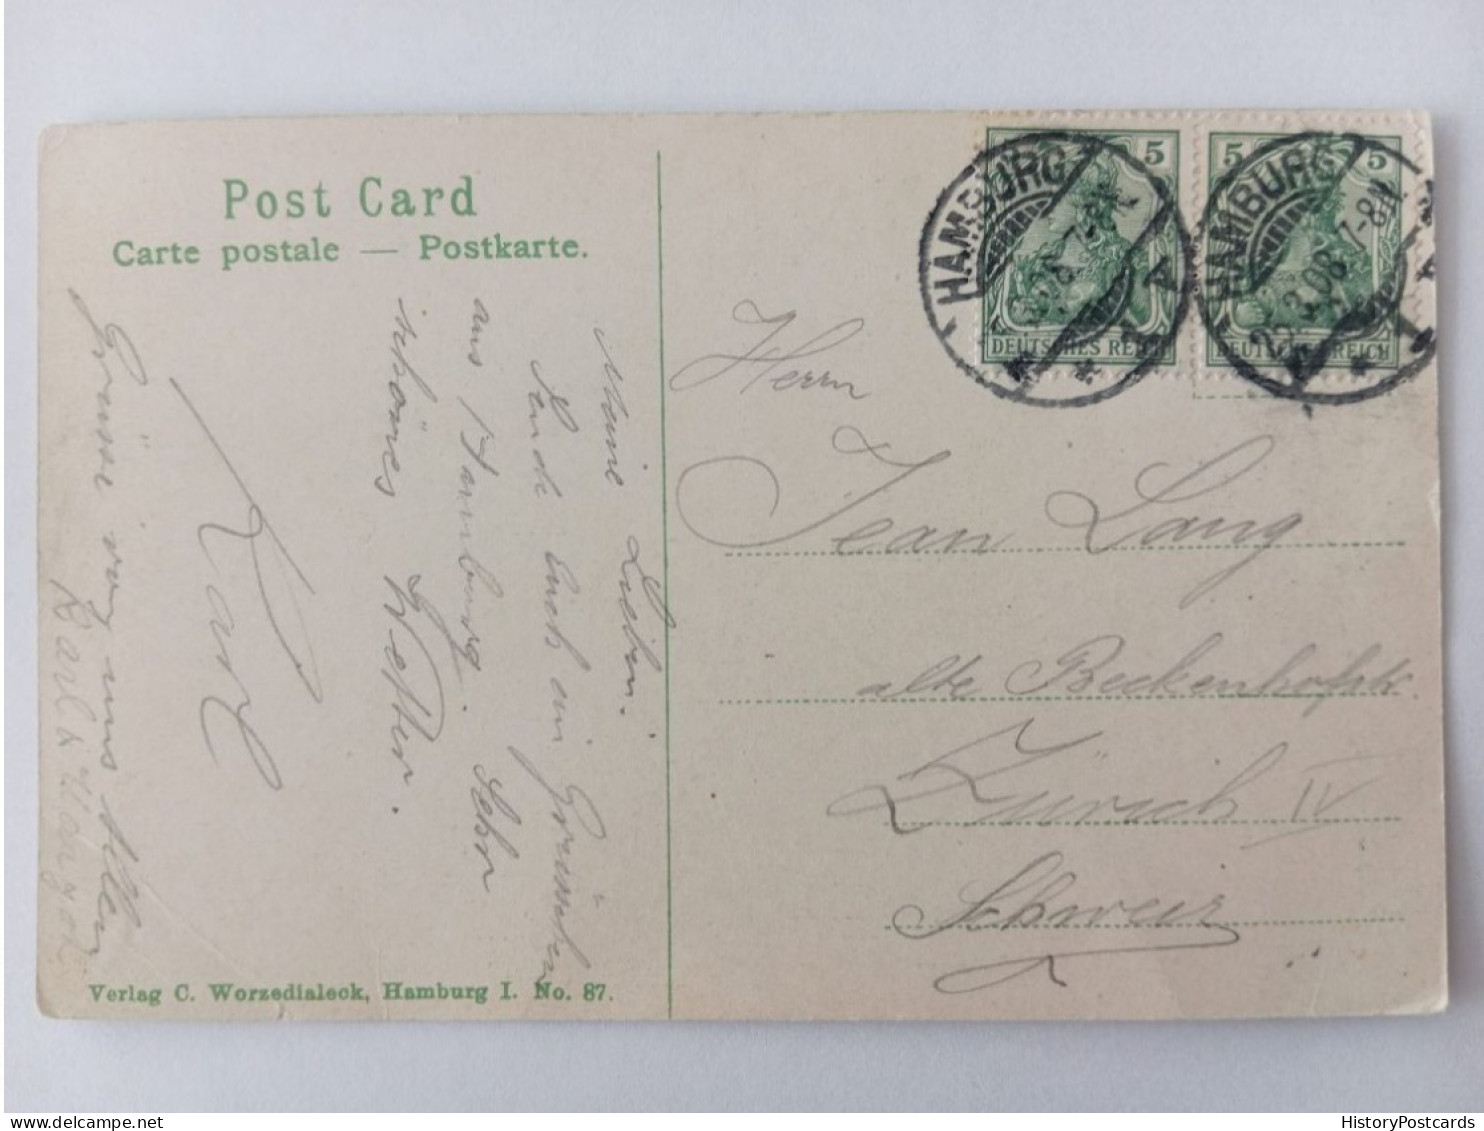 Post Card
Carte postale — Postkarte.
Meine Lieben.
Sende Euch ein Grüsschen
aus Hamburg. Sehr
schönes Wetter.
Karl
Grüsse von uns allen
Karl &
Verlag C. Worzedialeck, Hamburg I. No. 87.
5
5 5
DEUTSCHES REICH
DEUTSCHES REICH
HAMBURG
7-8N.
1
HAMBURG
3.08. 7-8N.
1
Herrn
Jean Lang
alte Beckenhofstr.
Zürich IV
Schweiz
HistoryPostcards